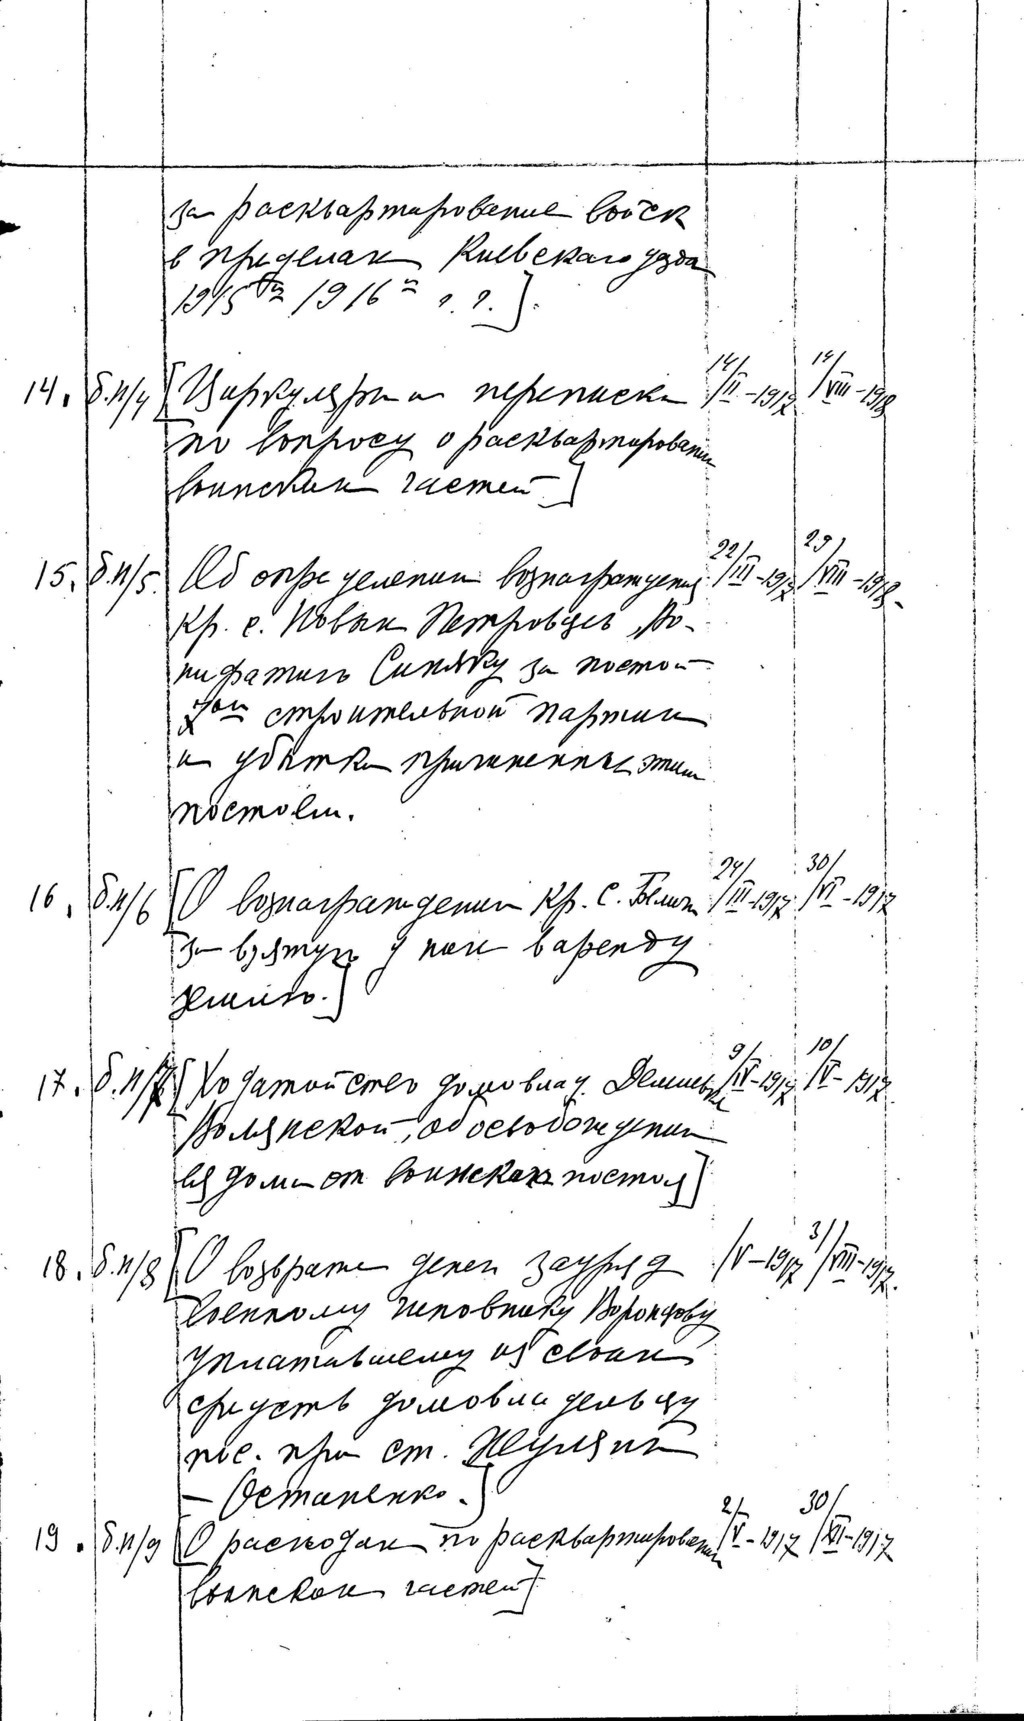 за расквартирование войск
в пределах Киевского уезда
1915 и 1916 г.г.].
14. б.н/4 [Циркуляры и переписка 14/II-1917 14/VIII-1918
по вопросу о расквартировании
воинских частей]
15. б.н/5. Об определении вознаграждения 22/III-1917 29/VIII-1918.
кр. с. Новых Петровцев Во-
нифатию Синяку за постой
строительной партии
и убытки причиненные этим
постоем.
16. б.н/6 [О вознаграждении кр. с. 24/III-1917 30/VI-1917
за взятую у них в аренду
землю.]
17. б.н/7 [Ходатайство домовлад. 9/IV-1917 10/V-1917.
Волянской, об освобождении
ея дома от воинских постоя]
18. б.н/8 [О возврате денег зауряд /V-1917 31/VIII-1917.
военному чиновнику Воронцову
уплатившему из своих
средств домовладельцу
пос. при ст. Жуляны
- Остапенко.]
19. б.н/9 [О расходах по расквартированию 2/V-1917 30/XI-1917
воинских частей]